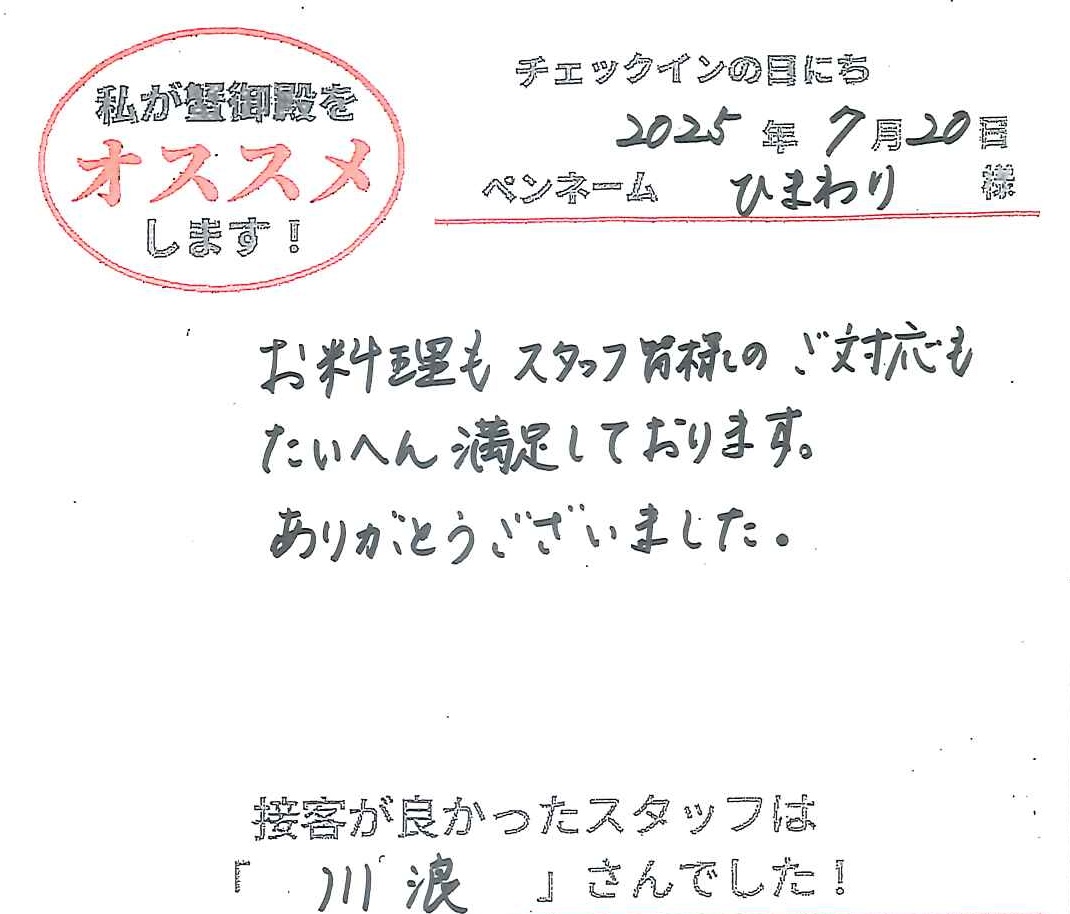 私が蟹御殿を
オススメ
します！
チェックインの日にち
2025年7月20日
ペンネーム ひまわり 様
お料理もスタッフ皆様のご対応も
たいへん満足しております。
ありがとうございました。
接客が良かったスタッフは
「川浪」さんでした！